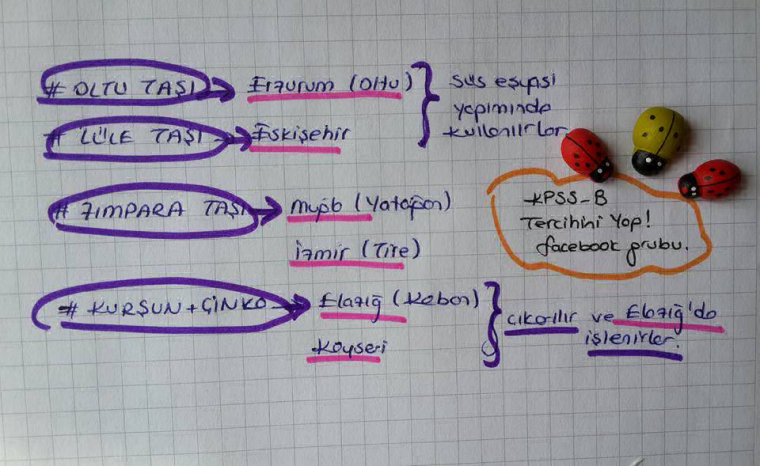 # OLTU TAŞI → Erzurum (Oltu)
# LÜLE TAŞI → Eskişehir
süs eşyası
yapımında
kullanılırlar
# ZIMPARA TAŞI → Muğla (Yatağan)
İzmir (Tire)
KPSS-B
Tercihini Yap!
facebook grubu.
# KURŞUN + ÇİNKO → Elazığ (Keban)
Kayseri
çıkarılır ve Elazığ'da
işlenirler.